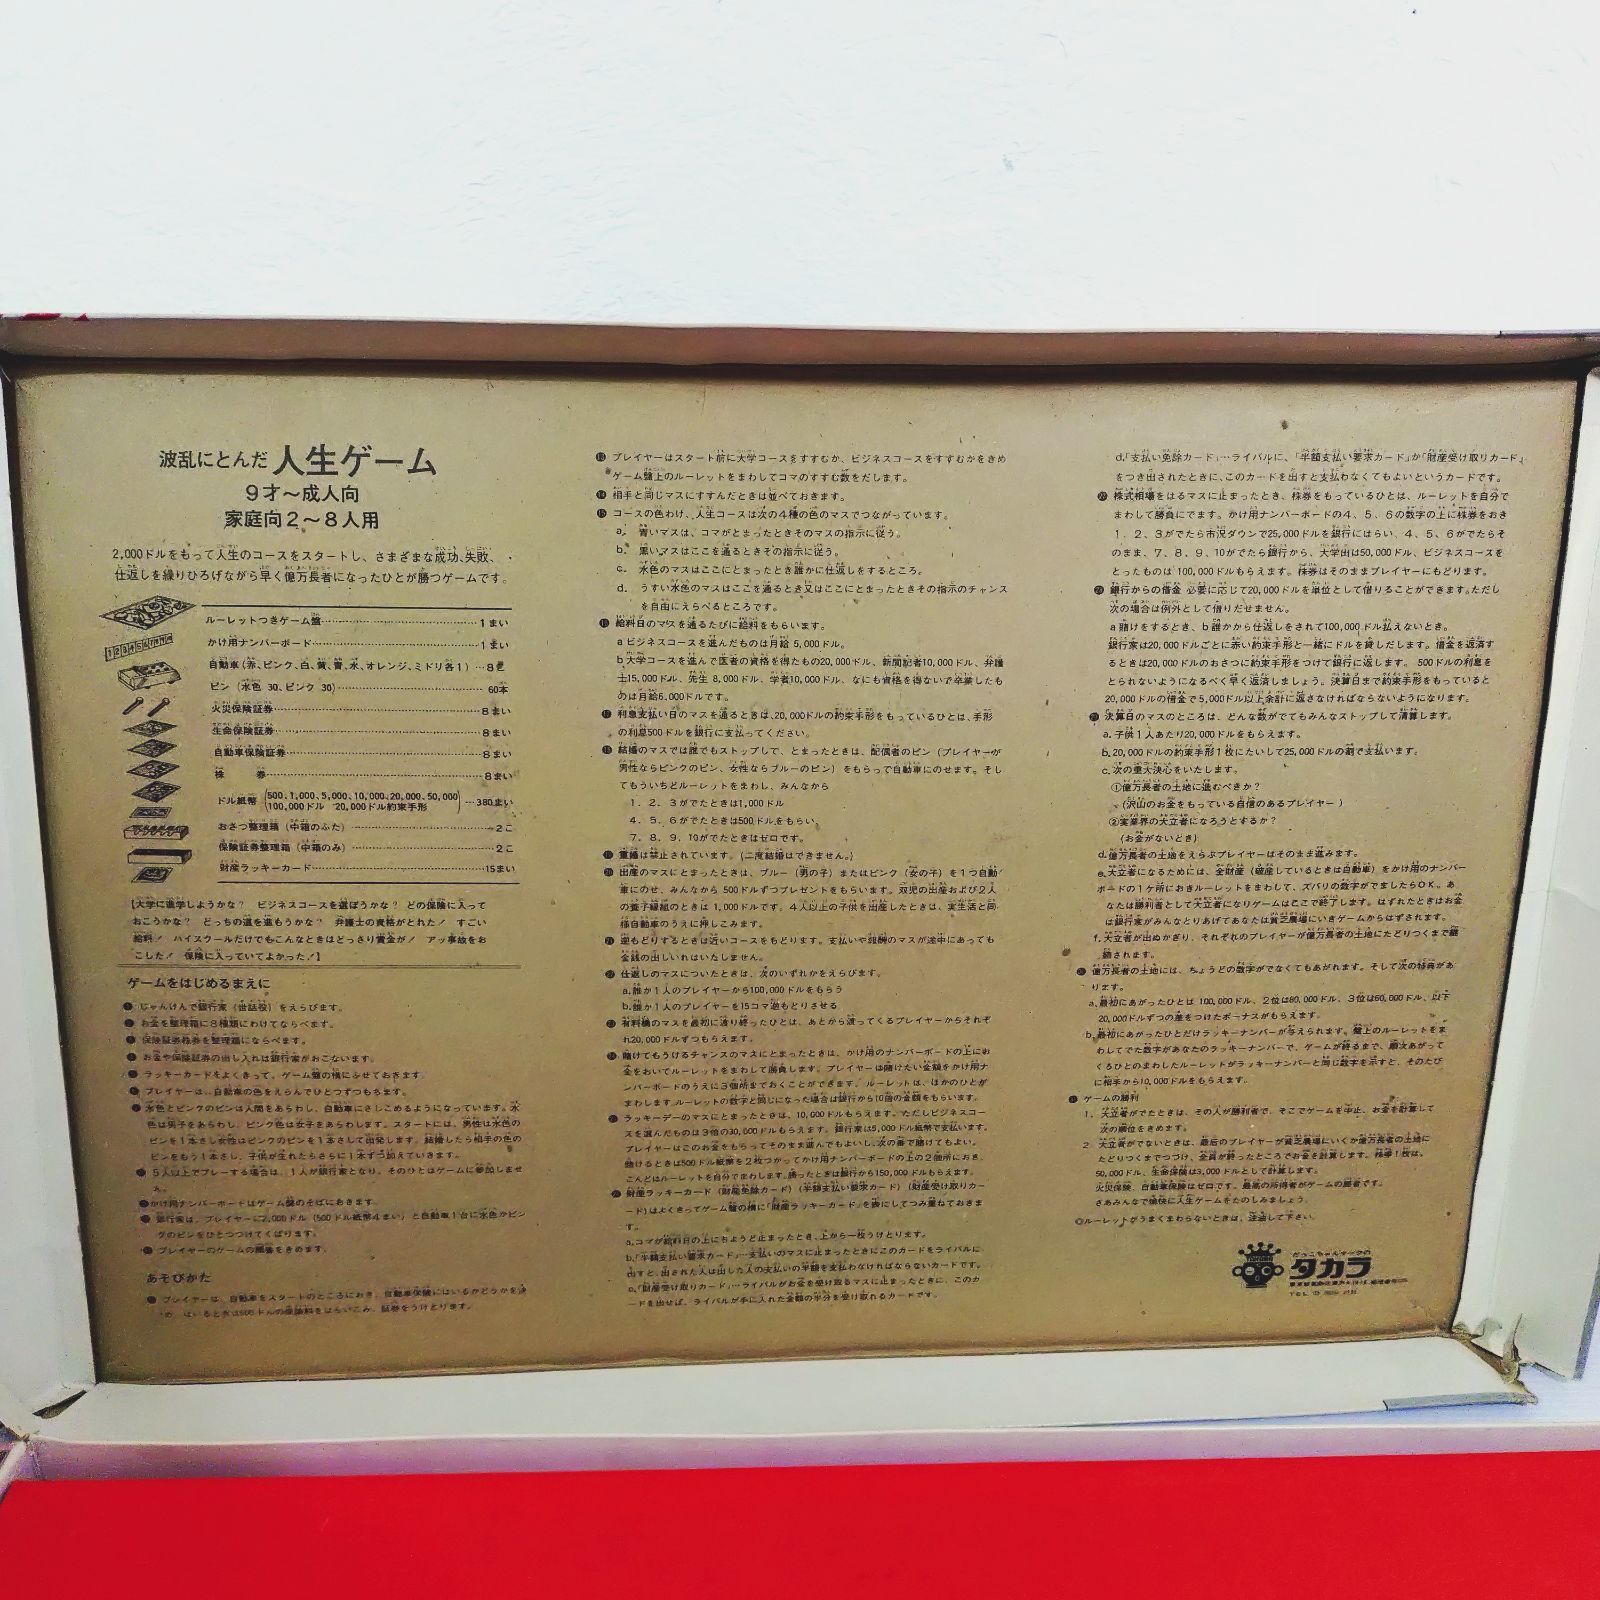 波乱にとんだ 人生ゲーム
9才〜成人向
家庭向2〜8人用
2,000ドルをもって人生のコースをスタートし、さまざまな成功、失敗、
仕返しを繰りひろげながら早く億万長者になったひとが勝つゲームです。
ルーレットつきゲーム盤 1まい
かけ用ナンバーボード 1まい
自動車(赤、ピンク、白、黄、青、水、オレンジ、ミドリ各1) 8
ピン(水色 30、ピンク 30) 60本
火災保険証券 8まい
生命保険証券 8まい
自動車保険証券 8まい
株券 8まい
ドル紙幣(500、1,000、5,000、10,000、20,000、50,000
100,000ドル 20,000ドル約束手形) 380まい
おさつ整理箱(中箱のふた) 2こ
保険証券整理箱(中箱のみ) 2こ
財産ラッキーカード 15まい
【大学に進学しようかな? ビジネスコースを選ぼうかな? どの保険に入って
おこうかな? どっちの道を進もうかな? 弁護士の資格がとれた! すごい
給料! ハイスクールだけでもこんなときはどっさり賞金が! アッ事故をお
こした! 保険に入っていてよかった!】
ゲームをはじめるまえに
じゃんけんで銀行家(世話役)をえらびます。
お金を整理箱に8種類にわけてならべます。
保険証券株券を整理箱にならべます。
お金や保険証券の出し入れは銀行家がおこないます。
ラッキーカードをよくきって、ゲーム盤の横にふせておきます。
プレイヤーは、自動車の色をえらんでひとつずつもちます。
水色とピンクのピンは人間をあらわし、自動車にさしこめるようになっています。水
色は男子をあらわし、ピンク色は女子をあらわします。スタートには、男性は水色の
ピンを1本さし女性はピンクのピンを1本さして出発します。結婚したら相手の色の
ピンをもう1本さし、子供が生れたらさらに1本ずつ加えていきます。
5人以上でプレーする場合は、1人が銀行家となり、そのひとはゲームに参加しませ
ん。
かけ用ナンバーボードはゲーム盤のそばにおきます。
銀行家は、プレイヤーに2,000ドル(500ドル紙幣4まい)と自動車1台に水色かピン
クのピンをひとつつけてくばります。
プレイヤーのゲームの順番をきめます。
あそびかた
プレイヤーは、自動車をスタートのところにおき、自動車保険にはいるかどうかを決
め、はいるときは500ドルの保険料をはらいこみ、証券をうけとります。
⓭ プレイヤーはスタート前に大学コースをすすむか、ビジネスコースをすすむかをきめ
ゲーム盤上のルーレットをまわしてコマのすすむ数をだします。
⓮ 相手と同じマスにすすんだときは並べておきます。
⓯ コースの色わけ、人生コースは次の4種の色のマスでつながっています。
a. 青いマスは、コマがとまったときそのマスの指示に従う。
b. 黒いマスはここを通るときその指示に従う。
c. 水色のマスはここにとまったとき誰かに仕返しをするところ。
d. うすい水色のマスはここを通るとき又はここにとまったときその指示のチャンス
を自由にえらべるところです。
⓰ 給料日のマスを通るたびに給料をもらいます。
a ビジネスコースを選んだものは月給 5,000ドル。
b 大学コースを進んで医者の資格を得たもの20,000ドル、新聞記者10,000ドル、弁護
士15,000ドル、先生 8,000ドル、学者10,000ドル、なにも資格を得ないで卒業したも
のは月給6,000ドルです。
⓱ 利息支払い日のマスを通るときは、20,000ドルの約束手形をもっているひとは、手形
の利息500ドルを銀行に支払ってください。
⓲ 結婚のマスでは誰でもストップして、とまったときは、配偶者のピン(プレイヤーが
男性ならピンクのピン、女性ならブルーのピン)をもらって自動車にのせます。そし
てもういちどルーレットをまわし、みんなから
1、2、3がでたときは1,000ドル
4、5、6がでたときは500ドルをもらい、
7、8、9、10がでたときはゼロです。
⓳ 重婚は禁止されています。(二度結婚はできません。)
⓴ 出産のマスにとまったときは、ブルー(男の子)またはピンク(女の子)を1つ自動
車にのせ、みんなから 500ドルずつプレゼントをもらいます。双児の出産および2人
の養子縁組のときは 1,000ドルです。4人以上の子供を出産したときは、実生活と同
様自動車のうえに押しこみます。
㉑ 逆もどりするときは近いコースをもどります。支払いや報酬のマスが途中にあっても
金銭の出しいれはいたしません。
㉒ 仕返しのマスについたときは、次のいずれかをえらびます。
a.誰か1人のプレイヤーから100,000ドルをもらう
b.誰か1人のプレイヤーを15コマ逆もどりさせる
㉓ 有料橋のマスを最初に渡り終ったひとは、あとから渡ってくるプレイヤーからそれぞ
れ20,000ドルずつもらえます。
㉔ 賭けてもうけるチャンスのマスにとまったときは、かけ用のナンバーボードの上にお
金をおいてルーレットをまわして勝負します。プレイヤーは賭けたい金額をかけ用ナ
ンバーボードのうえに3個所までおくことができます。ルーレットは、ほかのひとが
まわします ルーレットの数字と同じになった場合は銀行から10倍の金額をもらいます。
ラッキーデーのマスにとまったときは、10,000ドルもらえます。ただしビジネスコー
スを選んだものは3倍の30,000ドルもらえます。銀行家は5,000ドル紙幣で支払います。
プレイヤーはこのお金をもらってそのまま進んでもよいし、次の番で賭けてもよい。
賭けるときは500ドル紙幣を2枚つかってかけ用ナンバーボードの上の2個所におき、
こんどはルーレットを自分でまわします。勝ったときは銀行から150,000ドルもらえます。
財産ラッキーカード(財産免除カード)(半額支払い要求カード)(財産受け取りカー
ド)はよくきってゲーム盤の横に「財産ラッキーカード」を表にしてつみ重ねておきま
す。
a.コマが給料日の上にちょうど止まったとき、上から一枚うけとります。
b.「半額支払い要求カード」…支払いのマスに止まったときにこのカードをライバルに
出すと、出された人は出した人の支払いの半額を支払わなければならないカードです。
c.「財産受け取りカード」…ライバルがお金を受け取るマスに止まったときに、このカ
ードを出せば、ライバルが手に入れた金額の半分を受け取れるカードです。
d.「支払い免除カード」…ライバルに、「半額支払い要求カード」か「財産受け取りカード」
をつき出されたときに、このカードを出すと支払わなくてもよいというカードです。
株式相場をはるマスに止まったとき、株券をもっているひとは、ルーレットを自分で
まわして勝負にでます。かけ用ナンバーボードの4、5、6の数字の上に株券をおき
1、2、3がでたら市況ダウンで25,000ドルを銀行にはらい、4、5、6がでたらそ
のまま、7、8、9、10がでたら銀行から、大学出は50,000ドル、ビジネスコースを
とったものは 100,000ドルもらえます。株券はそのままプレイヤーにもどります。
銀行からの借金 必要に応じて20,000ドルを単位として借りることができます。ただし
次の場合は例外として借りだせません。
a 賭けをするとき、b 誰かから仕返しをされて100,000ドル払えないとき。
銀行家は20,000ドルごとに赤い約束手形と一緒にドルを貸しだします。借金を返済す
るときは20,000ドルのおさつに約束手形をつけて銀行に返します。 500ドルの利息を
とられないようになるべく早く返済しましょう。決算日まで約束手形をもっていると
20,000ドルの借金で5,000ドル以上余計に返さなければならないようになります。
決算日のマスのところは、どんな数がでてもみんなストップして清算します。
a.子供1人あたり20,000ドルをもらえます。
b.20,000ドルの約束手形1枚にたいして25,000ドルの割で支払います。
c.次の重大決心をいたします。
①億万長者の土地に進むべきか?
(沢山のお金をもっている自信のあるプレイヤー)
②実業界の大立者になろうとするか?
(お金がないとき)
d.億万長者の土地をえらぶプレイヤーはそのまま進みます。
e.大立者になるためには、全財産(破産しているときは自動車)をかけ用のナンバー
ボードの1ケ所におきルーレットをまわして、ズバリの数字がでましたらOK。あ
なたは勝利者として大立者になりゲームはここで終了します。はずれたときはお金
は銀行家がみんなとりあげてあなたは貧乏農場にいきゲームからはずされます。
f.大立者が出ぬかぎり、それぞれのプレイヤーが億万長者の土地にたどりつくまで継
続されます。
億万長者の土地には、ちょうどの数字がでなくてもあがれます。そして次の特典があ
ります。
a.最初にあがったひとは 100,000ドル、2位は80,000ドル、3位は60,000ドル、以下
20,000ドルずつの差をつけたボーナスがもらえます。
b.最初にあがったひとだけラッキーナンバーが与えられます。盤上のルーレットをま
わしてでた数字があなたのラッキーナンバーで、ゲームが終るまで、順次あがって
くるひとのまわしたルーレットがラッキーナンバーと同じ数字を示すと、そのたび
に相手から10,000ドルをもらえます。
ゲームの勝利
1. 大立者がでたときは、その人が勝利者で、そこでゲームを中止、お金を計算して
次の順位をきめます。
2. 大立者がでないときは、最後のプレイヤーが貧乏農場にいくか億万長者の土地に
たどりつくまでつづけ、全員が終ったところでお金を計算します。株券1枚は、
50,000ドル、生命保険は3,000ドルとして計算します。
火災保険、自動車保険はゼロです。最高の所得者がゲームの勝者です。
さあみんなで愉快に人生ゲームをたのしみましょう。
◎ルーレットがうまくまわらないときは、注油して下さい。
だっこちゃんマークの
タカラ